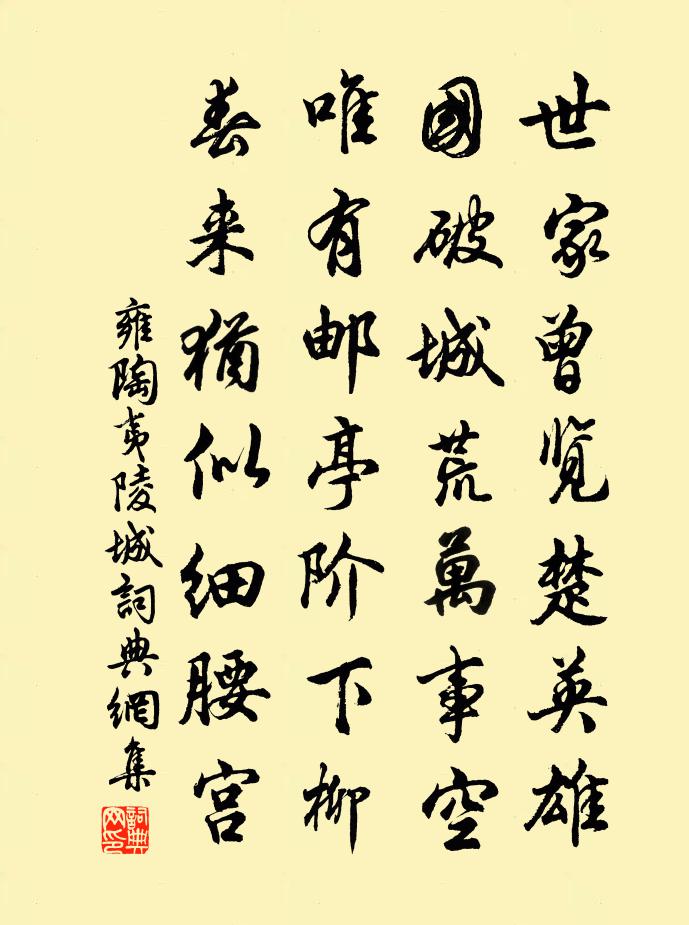 世家曾览楚英雄
國破城荒萬事空
唯有邮亭阶下柳
春来犹似细腰宫
雍陶夷陵城詞典網集
詞典网印